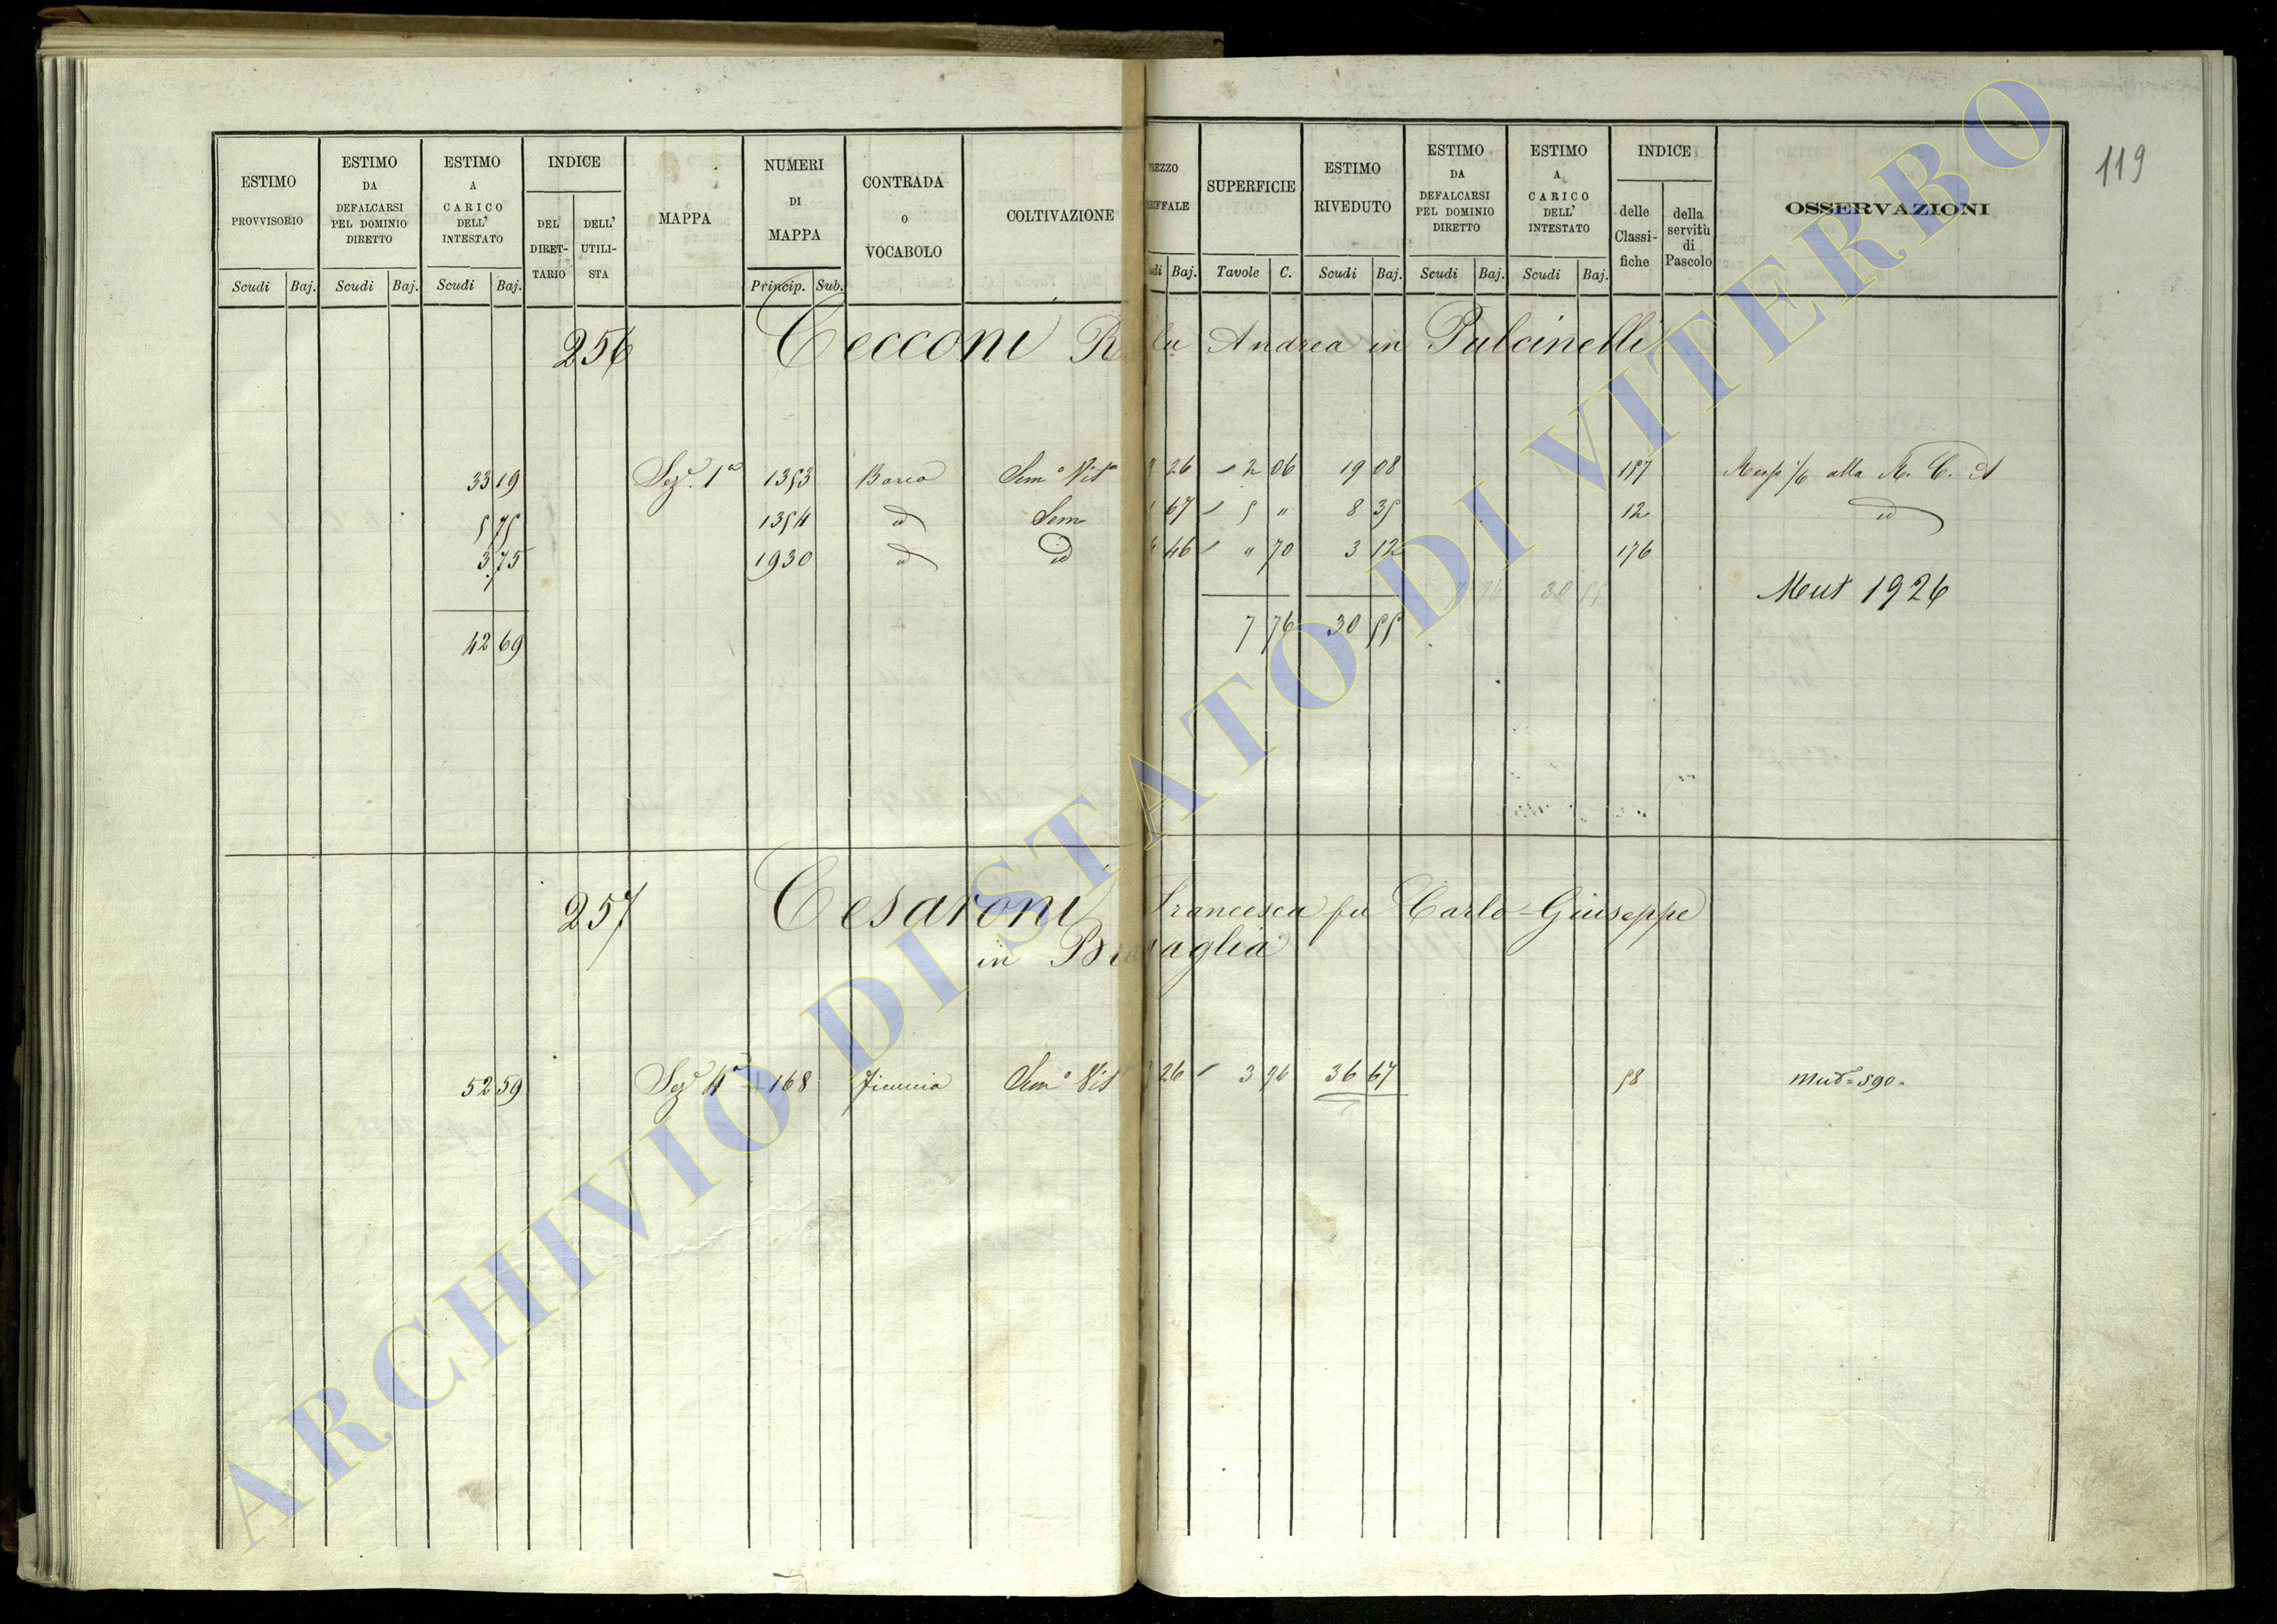 119
ESTIMO PROVVISORIO
ESTIMO DA DEFALCARSI PEL DOMINIO DIRETTO
ESTIMO A CARICO DELL' INTESTATO
INDICE
DEL DIRET-TARIO
DELL' UTILI-STA
MAPPA
NUMERI DI MAPPA
CONTRADA O VOCABOLO
COLTIVAZIONE
SUPERFICIE
ESTIMO RIVEDUTO
ESTIMO DA DEFALCARSI PEL DOMINIO DIRETTO
ESTIMO A CARICO DELL' INTESTATO
INDICE
delle Classi-fiche
della servitù di Pascolo
OSSERVAZIONI
Scudi Baj. Scudi Baj. Scudi Baj. Princip. Sub. Baj. Tavole C. Scudi Baj. Scudi Baj. Scudi Baj.
256 Cecconi Andrea in Pulcinelli
33 19 Sez. 1a 1353 Sem° Vit° 26 2 06 19 08 157 alla
5 75 1354 id Sem 67 5 " 8 35 12 id
3 75 1930 id id 46 " 70 3 12 176
Mut 1926
42 69 7 76 30 55
257 Cesaroni Francesca fu Carlo-Giuseppe
in
52 59 Sez 168 Sem° Vit 26 3 96 36 67 58 Mut=590=
ARCHIVIO DI STATO DI VITERBO